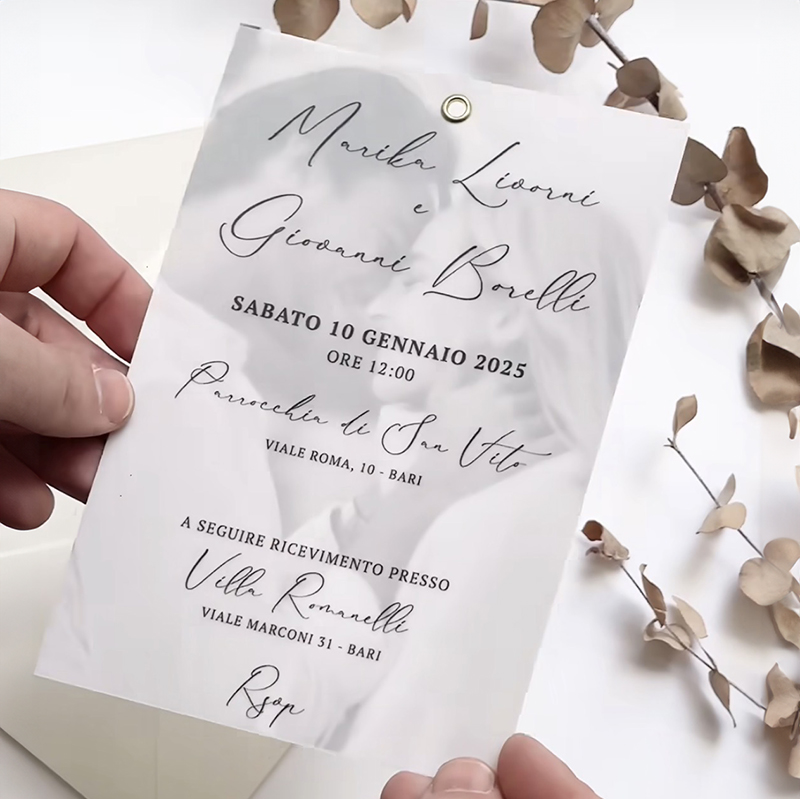 Marika Livorni
e
Giovanni Borelli
SABATO 10 GENNAIO 2025
ORE 12:00
Parrocchia di San Vito
VIALE ROMA, 10 - BARI
A SEGUIRE RICEVIMENTO PRESSO
Villa Romanelli
VIALE MARCONI 31 - BARI
Rsvp